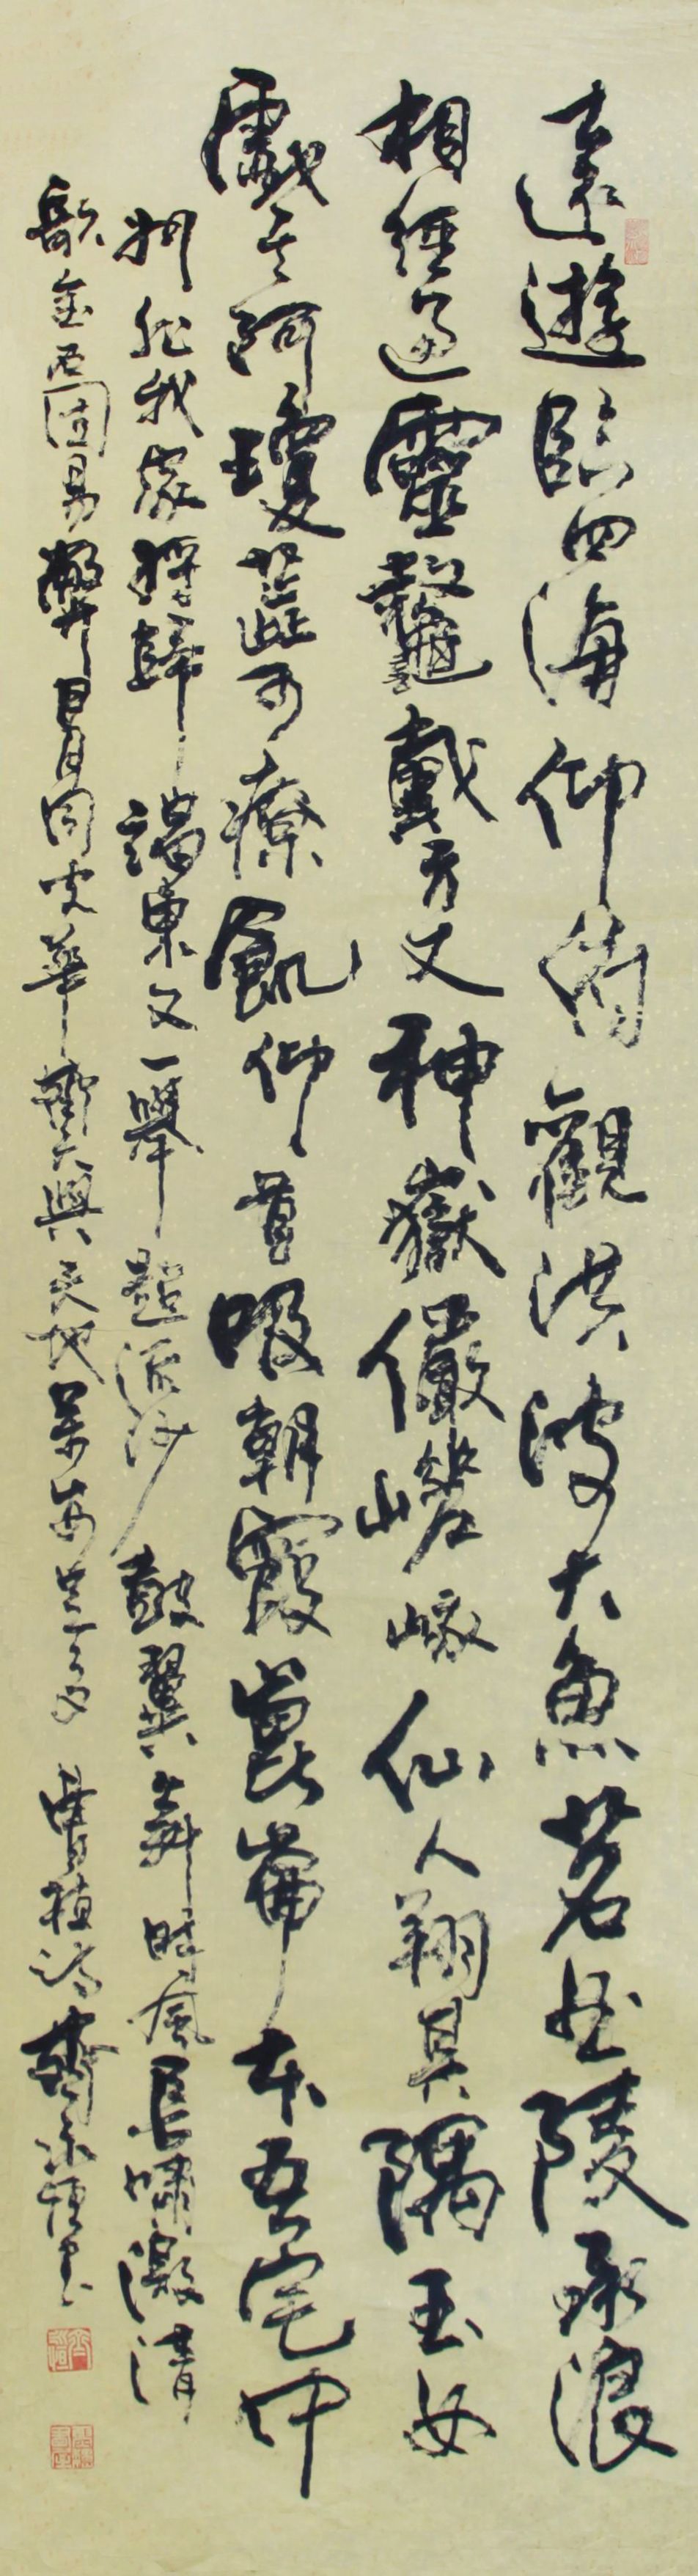 遠遊臨四海仰俯觀洪波大魚若曲陵承浪
相經過靈鼇戴方丈神嶽儼嵯峨仙人翔其隅玉女
戲其阿瓊蕋可療飢仰首吸朝霞崑崙本吾宅中
州非我家將歸謁東父一舉超流沙鼓翼舞時風長嘯激清
歌金石固易弊日月同光華齊年與天地萬安足多 曹植詩 齊書